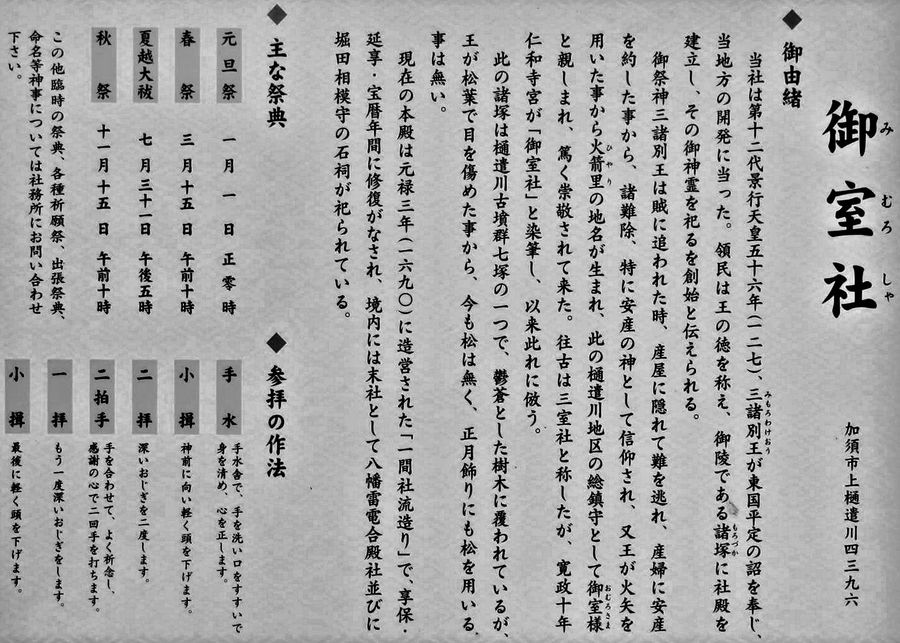 御室社
みむろしゃ
加須市上樋遣川四三九六
◆御由緒
当社は第十二代景行天皇五十六年(一二七)、三諸別王が東国平定の詔を奉じ、
みもろわけおう
当地方の開発に当った。領民は王の徳を称え、御陵である諸塚に社殿を
もろづか
建立し、その御神霊を祀るを創始と伝えられる。
御祭神三諸別王は賊に追われた時、産屋に隠れて難を逃れ、産婦に安産
を約した事から、諸難除、特に安産の神として信仰され、又王が火矢を
用いた事から火箭里の地名が生まれ、此の樋遣川地区の総鎮守として御室様
ひやり
おむろさま
と親しまれ、篤く崇敬されて来た。往古は三室社と称したが、寛政十年
仁和寺宮が「御室社」と染筆し、以来此れに倣う。
此の諸塚は樋遣川古墳群七塚の一つで、鬱蒼とした樹木に覆われているが、
王が松葉で目を傷めた事から、今も松は無く、正月飾りにも松を用いる
事は無い。
現在の本殿は元禄三年(一六九〇)に造営された「一間社流造り」で、享保・
延享・宝暦年間に修復がなされ、境内には末社として八幡雷電合殿社並びに
堀田相模守の石祠が祀られている。
◆主な祭典
元旦祭 一月一日 正零時
春祭 三月十五日 午前十時
夏越大祓 七月三十一日 午後五時
秋祭 十一月十五日 午前十時
この他臨時の祭典、各種祈願祭、出張祭典、
命名等神事については社務所にお問い合わせ
下さい。
◆参拝の作法
手水 手水舎で、手を洗い口をすすいで
身を清め、心を正します。
小揖 神前に向い軽く頭を下げます。
二拝 深いおじぎを二度します。
二拍手 手を合わせて、よく祈念し、
感謝の心で二回手を打ちます。
一拝 もう一度深いおじぎをします。
小揖 最後に軽く頭を下げます。